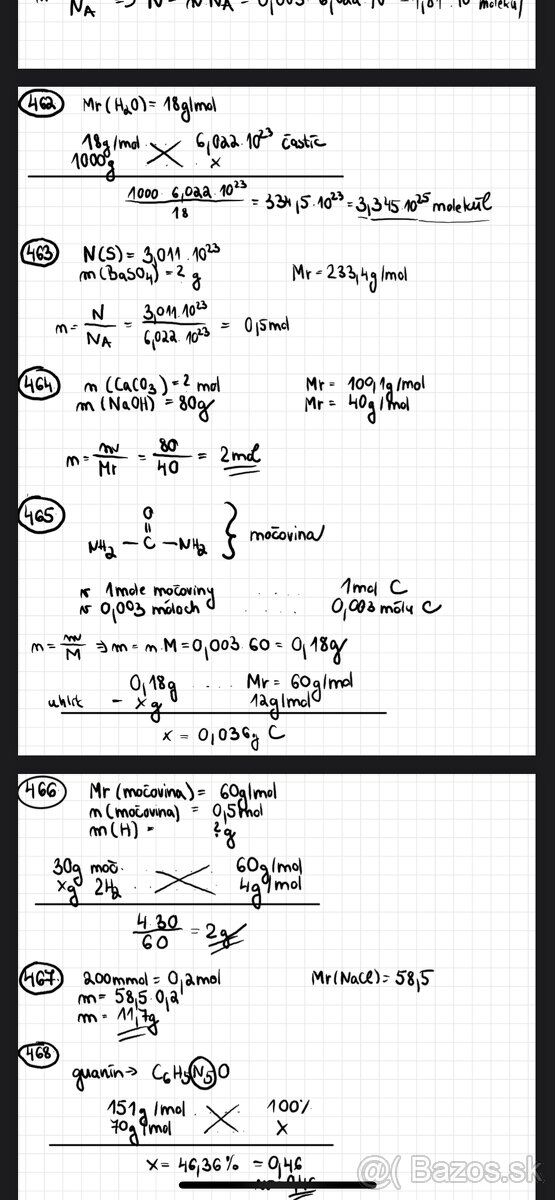 NA
462 Mr(H2O) = 18g/mol
18g/mol 6,022·10^23 častíc
1000g x
1000·6,022·10^23 / 18 = 334,5·10^23 = 3,345·10^25 molekúl
463 N(S) = 3,011·10^23
m(BaSO4) = 2g Mr = 233,4g/mol
n = N/NA = 3,011·10^23 / 6,022·10^23 = 0,5mol
464 n(CaCO3) = 2 mol Mr = 100,1g/mol
m(NaOH) = 80g Mr = 40g/mol
n = m/Mr = 80/40 = 2mol
465 O
NH2 – C – NH2 } močovina
v 1mole močoviny .... 1mol C
v 0,003 móloch .... 0,003 mólu C
n = m/M ⇒ m = n·M = 0,003·60 = 0,18g
0,18g .... Mr = 60g/mol
uhlík – xg 12g/mol
x = 0,036g C
466 Mr(močovina) = 60g/mol
n(močovina) = 0,5mol
m(H) = ?g
30g moč. 60g/mol
xg 2H2 4g/mol
4·30 / 60 = 2g
467 200mmol = 0,2mol Mr(NaCl) = 58,5
m = 58,5·0,2
m = 11,7g
468
guanín → C6H5N5O
151g/mol 100%
70g/mol x
x = 46,36% = 0,46
@( Bazos.sk